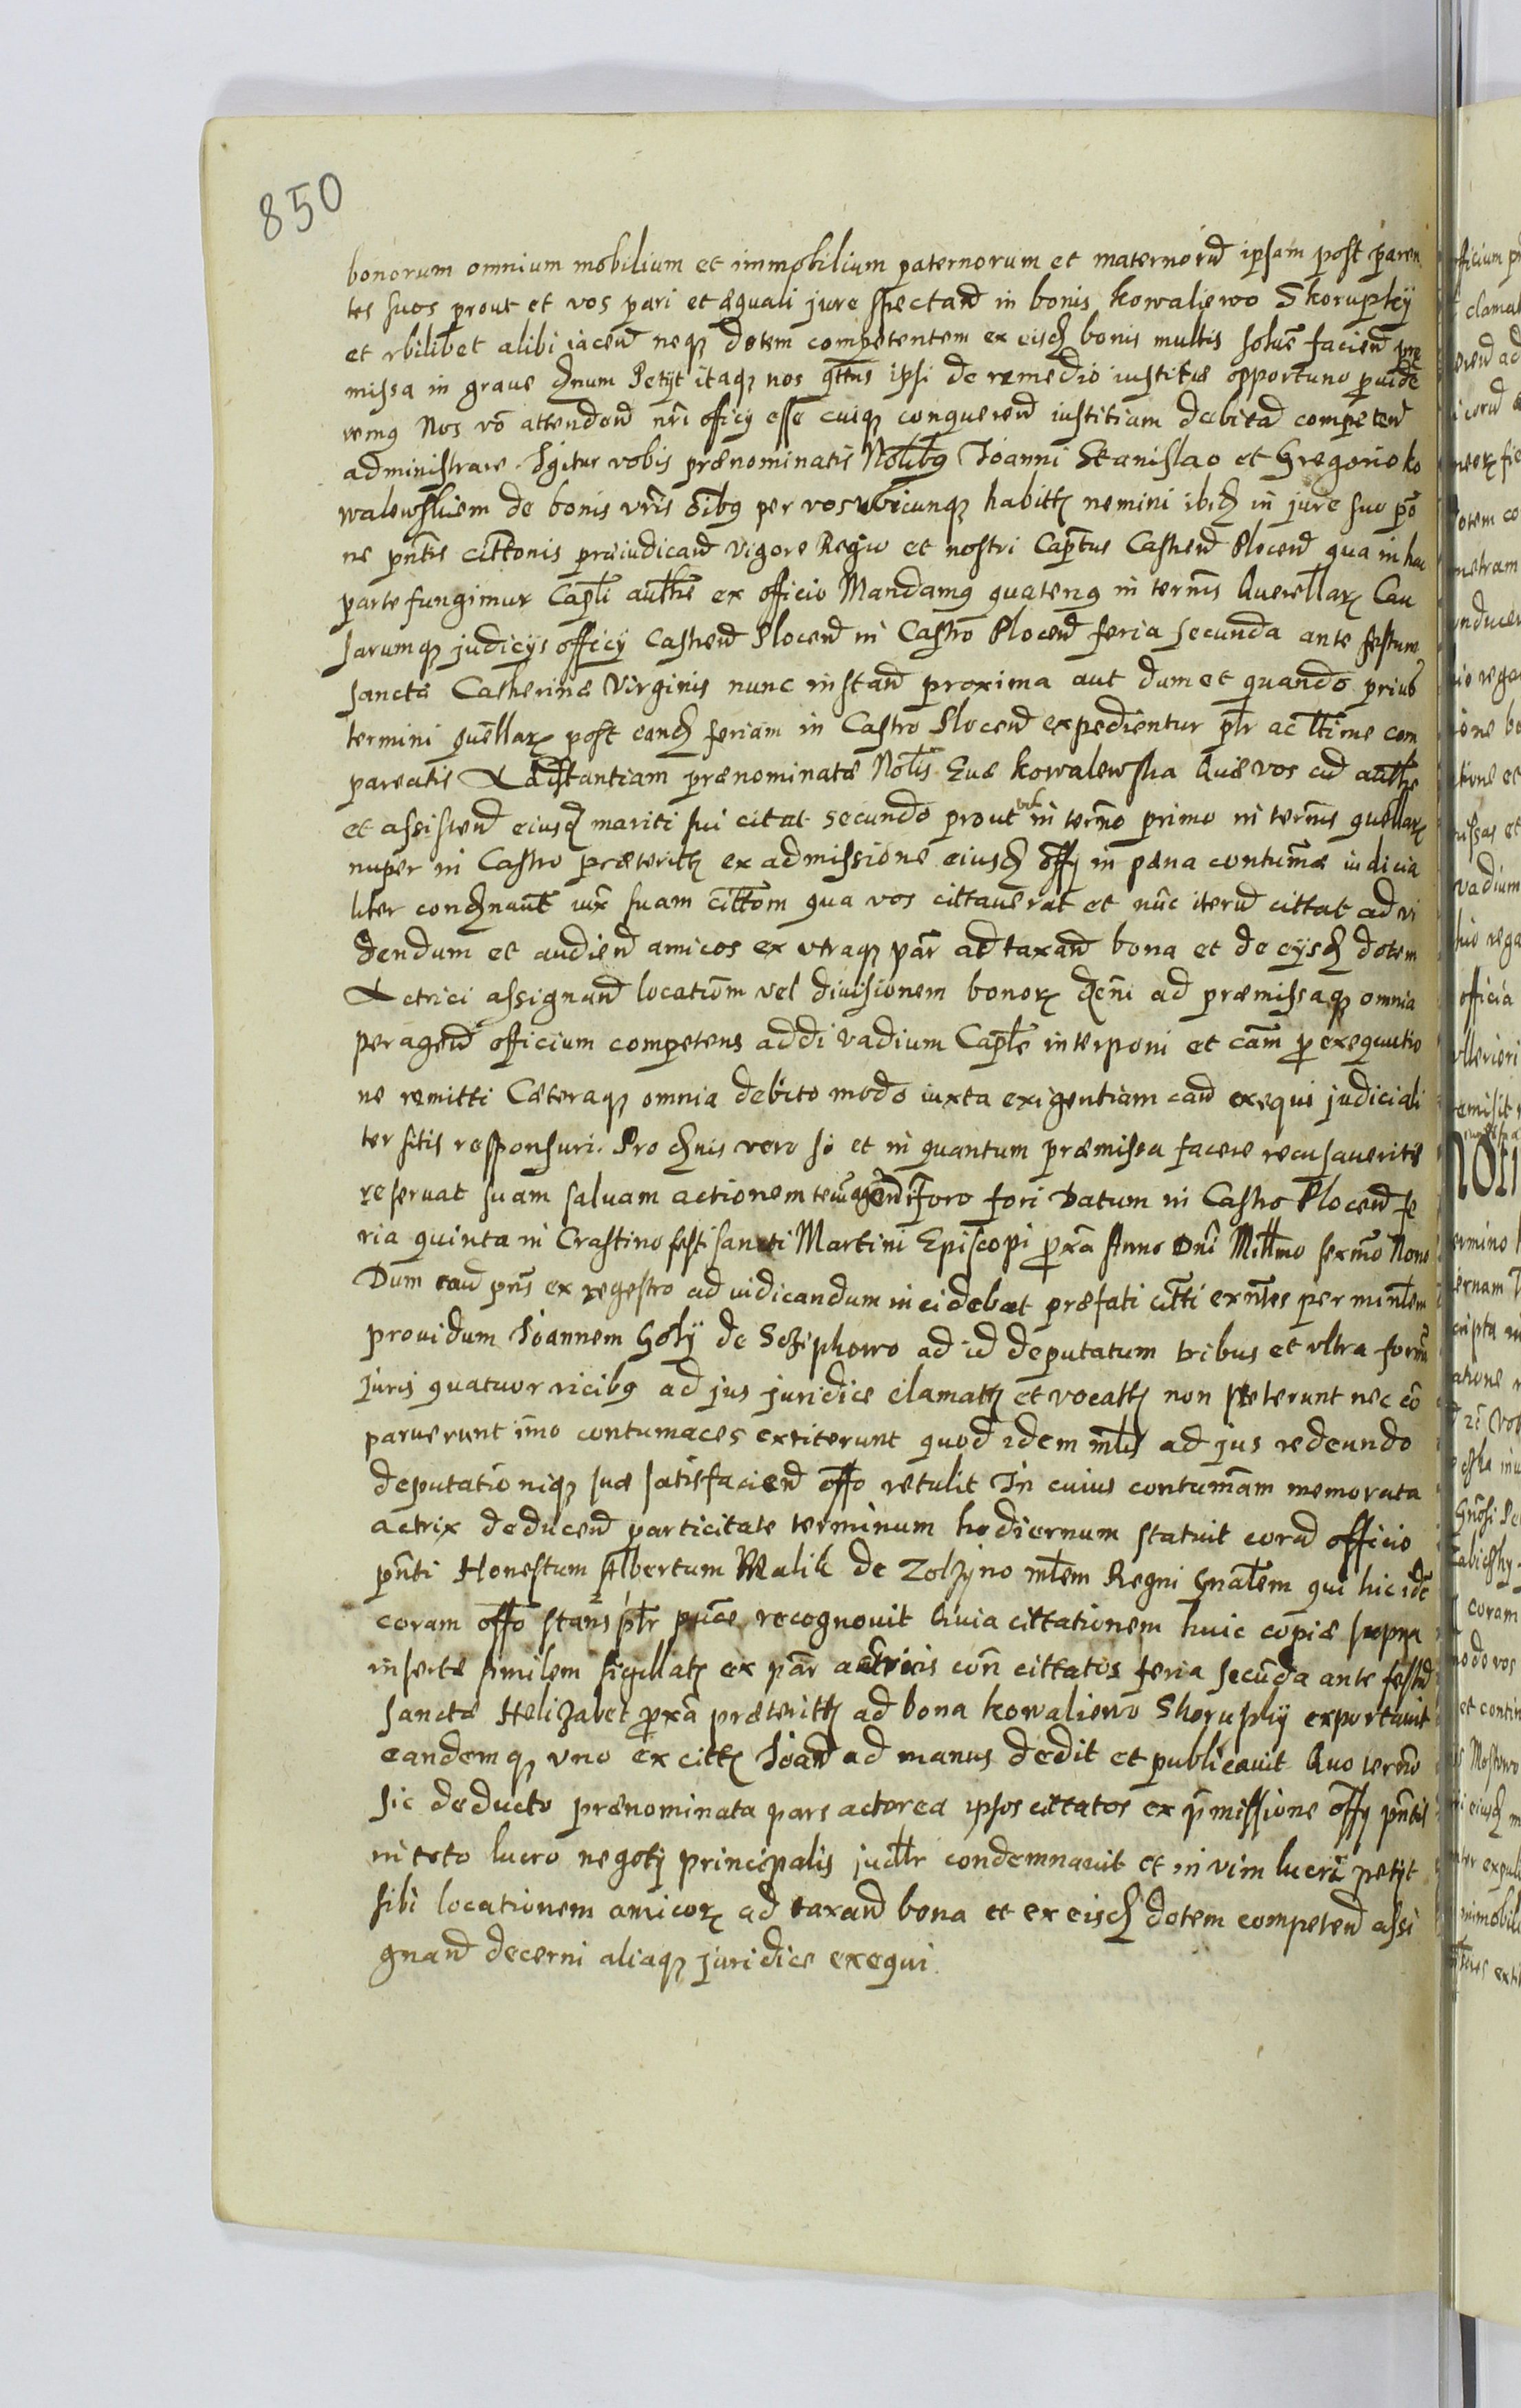 850
bonorum omnium mobilium et immobilium paternorum et maternorū ipsam post paren
tes suos prout et vos pari et æquali jure spectand in bonis Kowaliewo Skorupky
et vbilibet alibi iacen neq dotem competentem ex eisd bonis multis facien præ
missa in graue dnum Petyt itaq nos qttus ipsi de remedio iustitiæ opportuno puide
remq Nos vō attenden nri officij esse cuiq conqueren iustitiam debitā competen
administrare. Igitur vobis prænominatis Nolibq Joanni Stanislao et Gregorio Ko
walewskiem de bonis vris oibq per vos vbicunq habitt nemini ibid in jure suo pō
ne pntis cittonis præiudicand vigore Regio et nostri Captus Castren Plocen qua in hac
parte fungimur Capli authe ex officio Mandamq quatenq in termis Querellar Cau
sarumq judicijs officij Castren Plocen in Castro Plocen feria secunda ante festum
sanctæ Catherinæ Virginis nunc instan proxima aut dum et quando prius
termini quellar post eand feriam in Castro Plocen expedientur plr ac ltime com
pareatis Ad Instantiam prænominatæ Nolis Euæ Kowalewska Quæ vos cū authe
et assisten eiusd mariti sui citat secundo prout in termo primo in termis quellar
nuper in Castro præteritt ex admissione eiusd offi in pæna contumæ iudicia
liter condnaut iux suam cittom qua vos cittauerat et nūc iterū cittat ad vi
dendum et audien amicos ex vtraq par ad taxand bona et de eysd dotem
Actrici assignand locatiom vel diuisionem bonor dcni ad præmissaq omnia
peragen officium competens addi vadium Caple interponi et cām p exequutio
ne remitti Cæteraq omnia debito modo iuxta exigentiam cau exequi judiciali
ter sitis responsuri. Pro dnis vero si et in quantum præmissa facere recusaueritis
reseruat suam saluam actionem foro fori Datum in Castro Plocen fe
ria quinta in Crastino festi sancti Martini Episcopi pxa Anno Dni Millmo sexmo Nono
Dum cau pns ex regestro ad iudicandum incidebat præfati citti exntes per minlem
prouidum Joannem Goly de Sziphowo ad id deputatum tribus et vltra formā
juris quatuor vicibq ad jus juridice clamatt et vocatt non steterunt nec cō
paruerunt imo contumaces extiterunt quod idem mlis ad jus redeundo
deputationiq suæ satisfacien offo retulit In cuius contumam memorata
actrix deducen particitate terminum hodiernum statuit corā officio
pnti Honestum Albertum Walik de Zolzyno mlem Regni Gnalem qui hic idē
coram offo stans plr recognouit Quia cittationem huic copiæ supra
insertæ similem sigillat ex par actricis con cittatos feria secūda ante festū
sanctæ Helizabet pxa præteritt ad bona Kowaliewo Skorupky exportauit
eandemq vno ex citt Joan ad manus dedit et publicauit Quo termo
sic deducto prænominata pars actorea ipsos cittatos ex pmissione offi pntis
in toto lucro negotij principalis judlr condemnauit et in vim lucri petyt
sibi locationem amicor ad taxand bona et ex eisd dotem competen assi
gnand decerni aliaq juridice exequi.